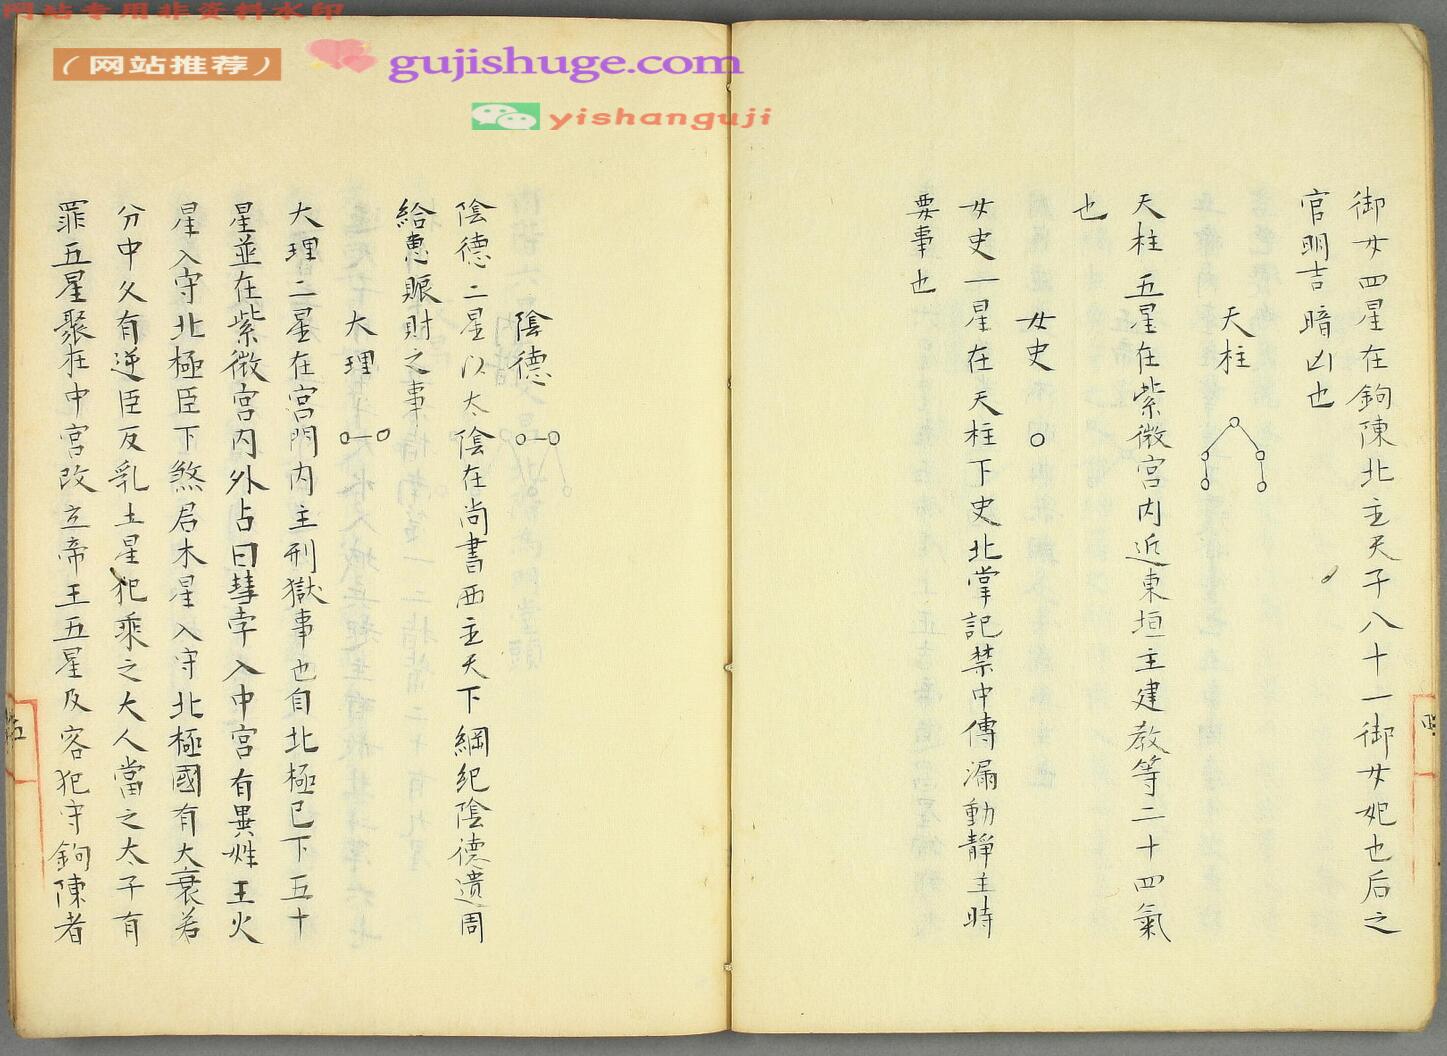 网站专用非资料水印
（网站推荐）
gujishuge.com
yishanguji
御女四星在鉤陳北主天子八十一御女妃也后之
官明吉暗凶也
天柱
天柱五星在紫微宮内近東垣主建教等二十四氣
也
女史
女史一星在天柱下史北掌記禁中傳漏動靜主時
要事也
陰德
陰德二星以太陰在尚書西主天下綱紀陰德遺周
給惠賑財之事
大理
大理二星在宮門内主刑獄事也自北極已下五十
星並在紫微宮内外占曰彗孛入中宮有異姓王火
星入守北極臣下煞君木星入守北極國有大衰若
分中久有逆臣反乱土星犯乘之大人當之太子有
罪五星聚在中宮改立帝王五星及客犯守鉤陳者
五